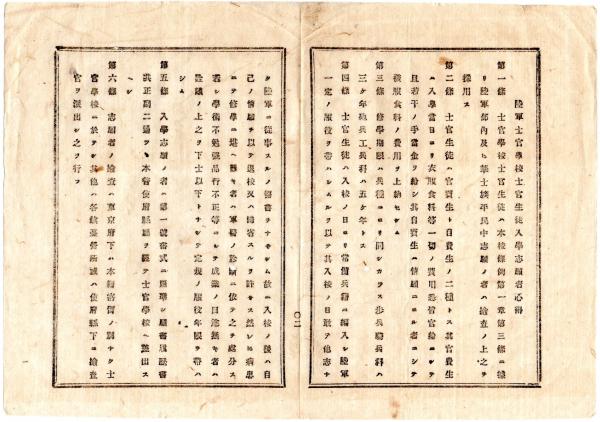 陸軍士官學校士官生徒入學志願者心得
第一條 士官學校士官生徒ハ本校條例第一章第三條ニ據
リ陸軍部內及ヒ華士族平民中志願ノ者ハ檢査ノ上之ヲ
採用ス
第二條 士官生徒ハ官費生ト自費生ノ二種トス其官費生
ハ入學當日ヨリ衣服食料等一切ノ費用悉皆官給ニシテ
且若干ノ手當金ヲ給シ其自費生ハ情願ニヨル者ニシテ
衣服食料ノ費用ヲ上納セシム
第三條 修學期限ハ兵種ニヨリ同シカラス步兵騎兵科ハ
三ケ年砲兵工兵科ハ五ケ年トス
第四條 士官生徒ハ入校ノ日ヨリ常備兵籍ニ編入シ陸軍
一定ノ服役ヲ帶ハシムルヲ以テ其入校ノ日敢テ他志ナ
〇二
ク陸軍ニ從事スルノ誓書ヲナサシム故ニ入校ノ後ハ自
己ノ情願ヲ以テ退校又ハ歸省スルヲ許サス然レ𪜈病患
ニテ修學ニ堪ヘ難キ者ハ軍醫ノ診斷ニ依テ之ヲ處分ス
若シ學術不勉强品行不正等ニシテ成業ノ目途無キ者ハ
詮議ノ上之ヲ下士以下トナシテ定規ノ服役年限ヲ帶ハ
シム
第五條 入學志願ノ者ハ第一號書式ニ照準シ願書履歷書
共正副二通ヲ本管使府縣廳ヲ經テ士官學校ヘ差出ス
ヘシ
第六條 志願者ノ檢査ハ東京府下ハ本籍寄留ノ別ナク士
官學校ニ於テシ其他ハ各鎭臺營所或ハ使府縣下ニ檢査
官ヲ派出シ之ヲ行フ